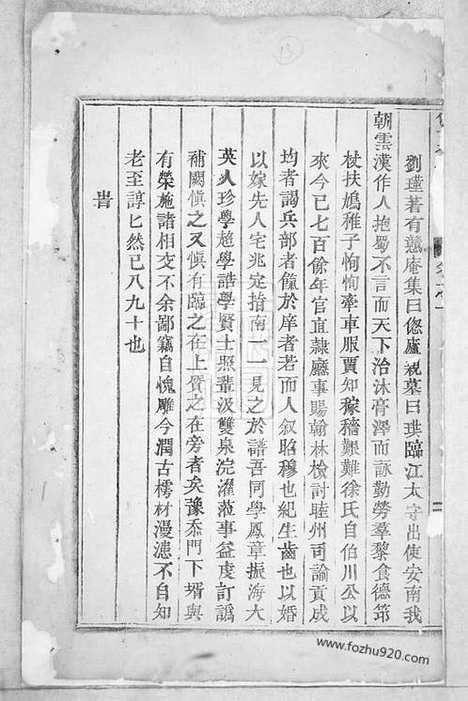 劉瑾著有戇庵集曰偲廬視墓曰珙臨江太守出使安南我
朝雲漢作人抱蜀不言而天下治沐膏澤而詠勤勞羣黎食德筇
杖扶鳩稚子恂恂牽車服賈知稼穡艱難徐氏自伯川公以
來今已七百餘年官直隸廳事賜翰林檢討睦州司諭貢成
均者謁兵部者僟於庠者若而人叙昭穆也紀生齒也以婚
以嫁先人宅兆定指南一一見之於譜吾同學鳳章振海大
英人珍學趋學誥學賢士照輩汲雙泉浣濯蒞事益虔訂譌
補闕愼之又愼有臨之在上質之在旁者矣豫忝門下壻與
有榮施諸相交不余鄙竊自愧雕今潤古樗材漫漶不自知
老至諄匕然已八九十也
旹
www.fozhu920.com